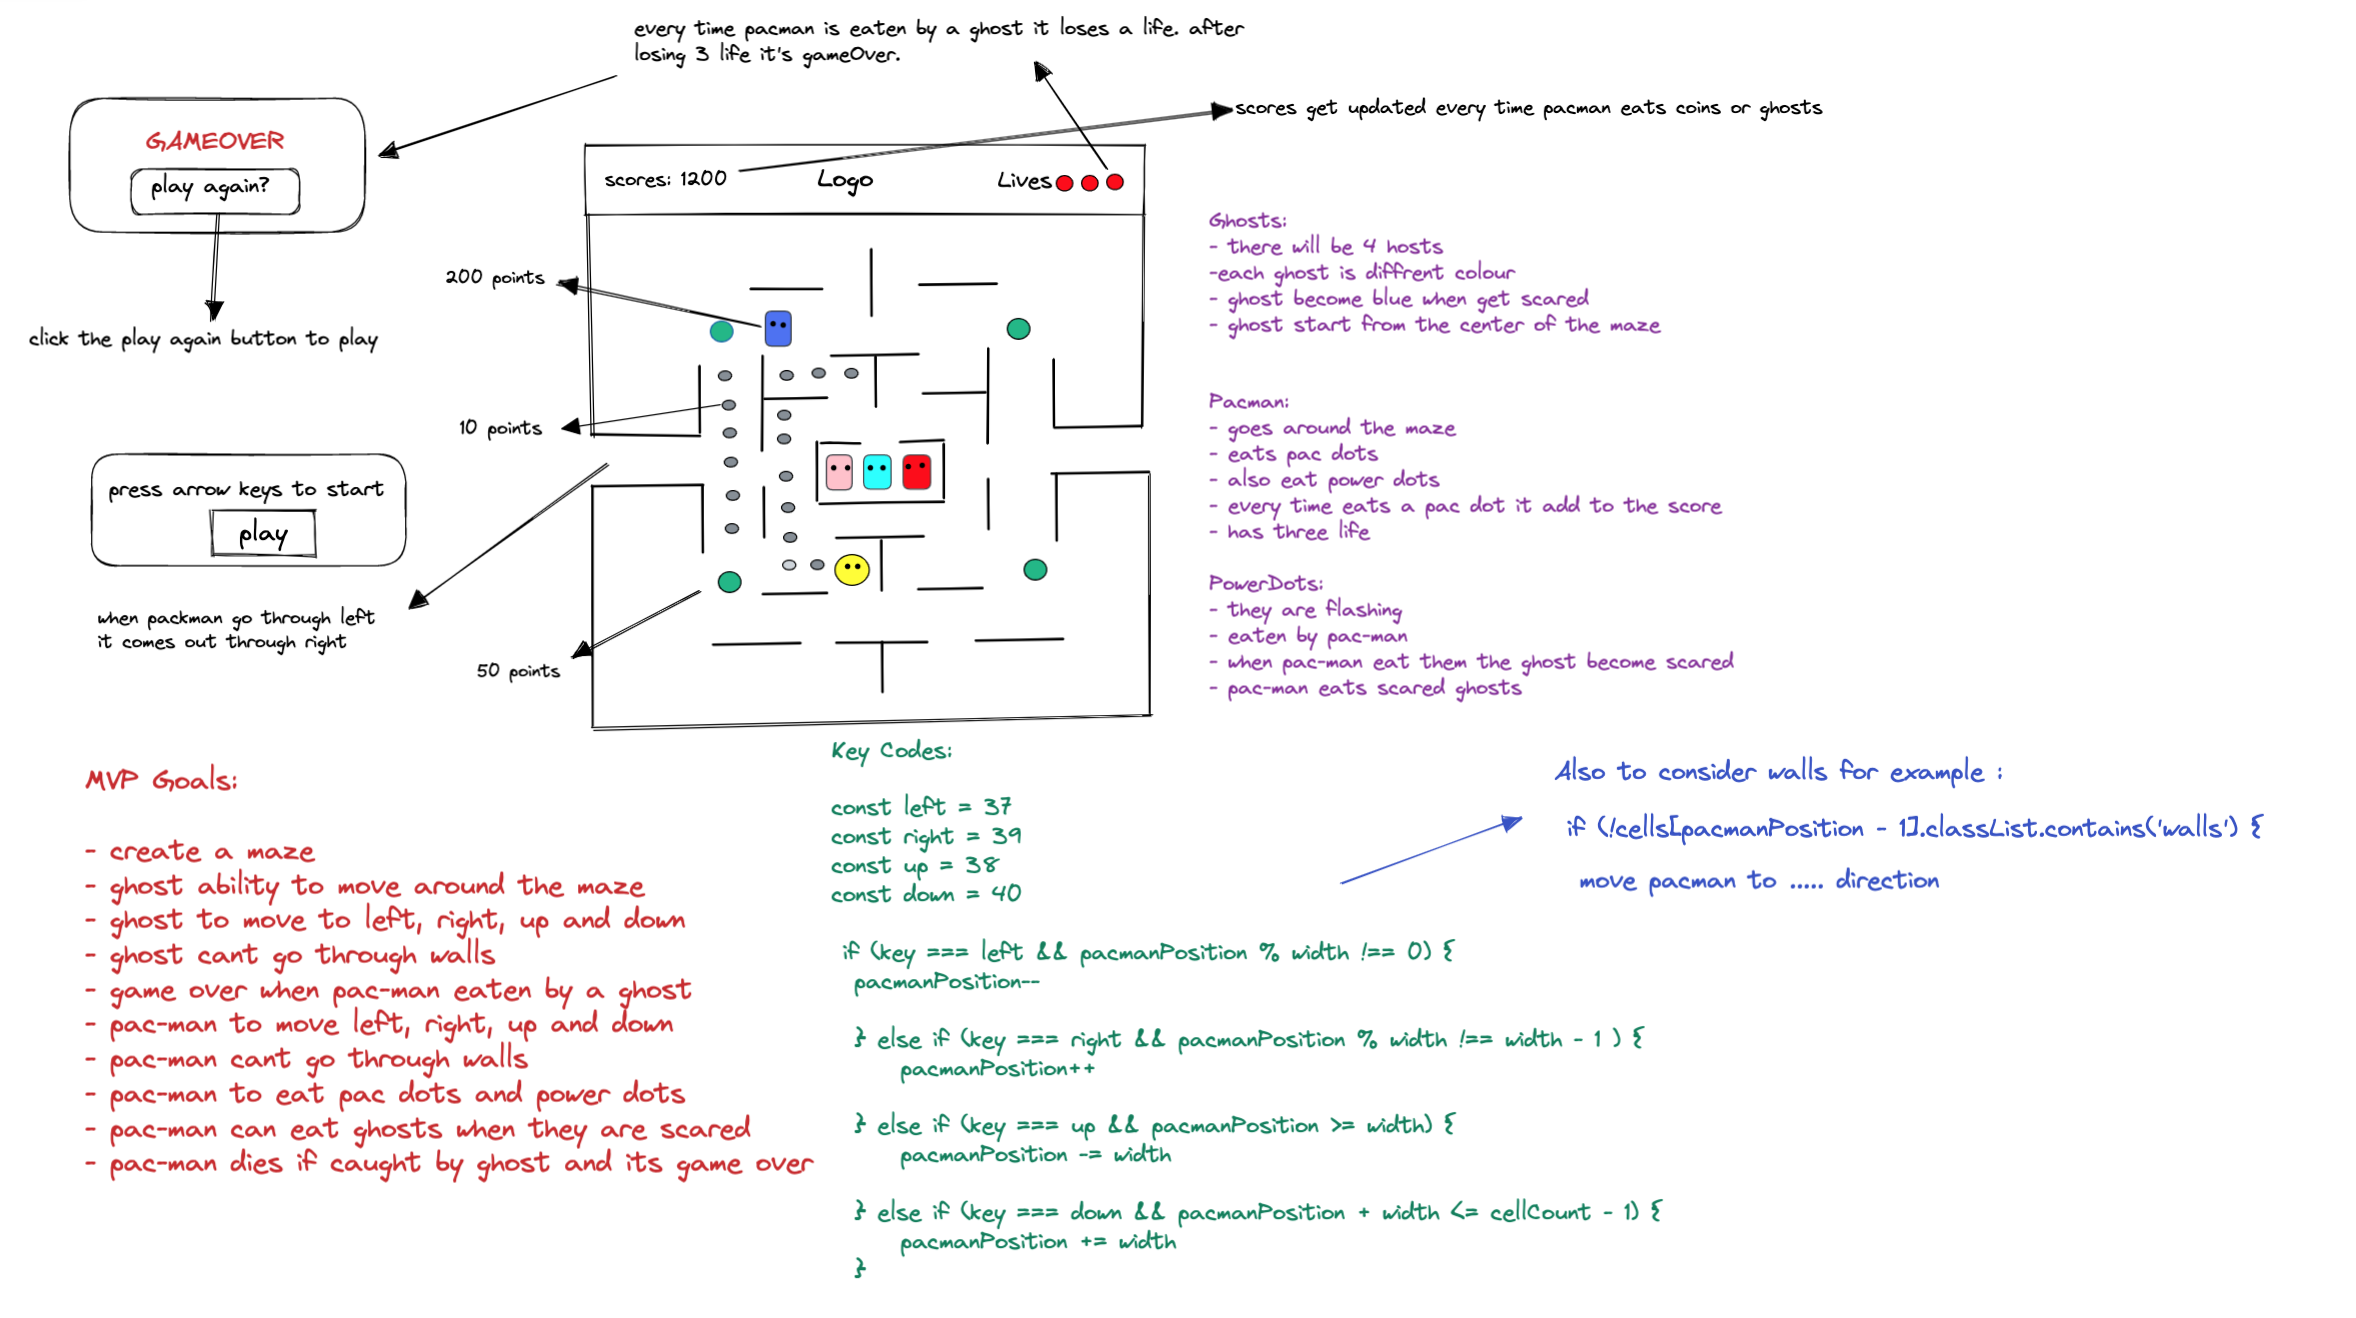 every time pacman is eaten by a ghost it loses a life. after
losing 3 life it's gameOver.
scores get updated every time pacman eats coins or ghosts
GAMEOVER
play again?
click the play again button to play
scores: 1200
Logo
Lives
200 points
10 points
50 points
press arrow keys to start
play
when packman go through left
it comes out through right
Ghosts:
- there will be 4 hosts
-each ghost is diffrent colour
- ghost become blue when get scared
- ghost start from the center of the maze
Pacman:
- goes around the maze
- eats pac dots
- also eat power dots
- every time eats a pac dot it add to the score
- has three life
PowerDots:
- they are flashing
- eaten by pac-man
- when pac-man eat them the ghost become scared
- pac-man eats scared ghosts
MVP Goals:
- create a maze
- ghost ability to move around the maze
- ghost to move to left, right, up and down
- ghost cant go through walls
- game over when pac-man eaten by a ghost
- pac-man to move left, right, up and down
- pac-man cant go through walls
- pac-man to eat pac dots and power dots
- pac-man can eat ghosts when they are scared
- pac-man dies if caught by ghost and its game over
Key Codes:
const left = 37
const right = 39
const up = 38
const down = 40
if (key === left && pacmanPosition % width !== 0) {
pacmanPosition--
} else if (key === right && pacmanPosition % width !== width - 1 ) {
pacmanPosition++
} else if (key === up && pacmanPosition >= width) {
pacmanPosition -= width
} else if (key === down && pacmanPosition + width <= cellCount - 1) {
pacmanPosition += width
}
Also to consider walls for example :
if (!cells[pacmanPosition - 1].classList.contains('walls') {
move pacman to ..... direction